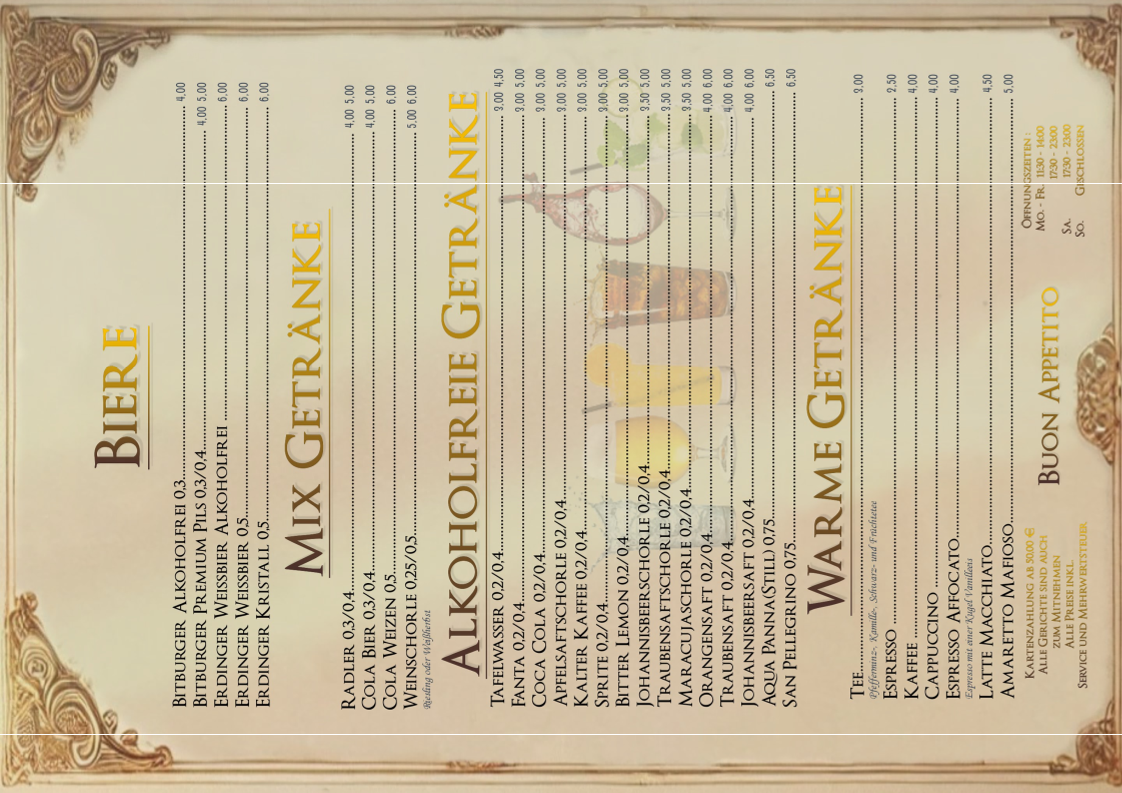 BIERE
BITBURGER ALKOHOLFREI 0,3 4,00
BITBURGER PREMIUM PILS 0,3/0,4 4,00 5,00
ERDINGER WEISSBIER ALKOHOLFREI 6,00
ERDINGER WEISSBIER 0,5 6,00
ERDINGER KRISTALL 0,5 6,00
MIX GETRÄNKE
RADLER 0,3/0,4 4,00 5,00
COLA BIER 0,3/0,4 4,00 5,00
COLA WEIZEN 0,5 6,00
WEINSCHORLE 0,25/0,5 5,00 6,00
Riesling oder Weißherbst
ALKOHOLFREIE GETRÄNKE
TAFELWASSER 0,2/0,4 3,00 4,50
FANTA 0,2/0,4 3,00 5,00
COCA COLA 0,2/0,4 3,00 5,00
APFELSAFTSCHORLE 0,2/0,4 3,00 5,00
KALTER KAFFEE 0,2/0,4 3,00 5,00
SPRITE 0,2/0,4 3,00 5,00
BITTER LEMON 0,2/0,4 3,00 5,00
JOHANNISBEERSCHORLE 0,2/0,4 3,50 5,00
TRAUBENSAFTSCHORLE 0,2/0,4 3,50 5,00
MARACUJASCHORLE 0,2/0,4 3,50 5,00
ORANGENSAFT 0,2/0,4 4,00 6,00
TRAUBENSAFT 0,2/0,4 4,00 6,00
JOHANNISBEERSAFT 0,2/0,4 4,00 6,00
AQUA PANNA(STILL) 0,75 6,50
SAN PELLEGRINO 0,75 6,50
WARME GETRÄNKE
TEE 3,00
Pfefferminz-, Kamille-, Schwarz- und Früchtetee
ESPRESSO 2,50
KAFFEE 4,00
CAPPUCCINO 4,00
ESPRESSO AFFOCATO 4,00
Espresso mit einer Kugel Vanilleeis
LATTE MACCHIATO 4,50
AMARETTO MAFIOSO 5,00
KARTENZAHLUNG AB 50,00 €
ALLE GERICHTE SIND AUCH
ZUM MITNEHMEN
ALLE PREISE INKL.
SERVICE UND MEHRWERTSTEUER
BUON APPETITO
ÖFFNUNGSZEITEN :
MO. - FR. 11:30 - 14:00
17:30 - 23:00
SA. 17:30 - 23:00
SO. GESCHLOSSEN